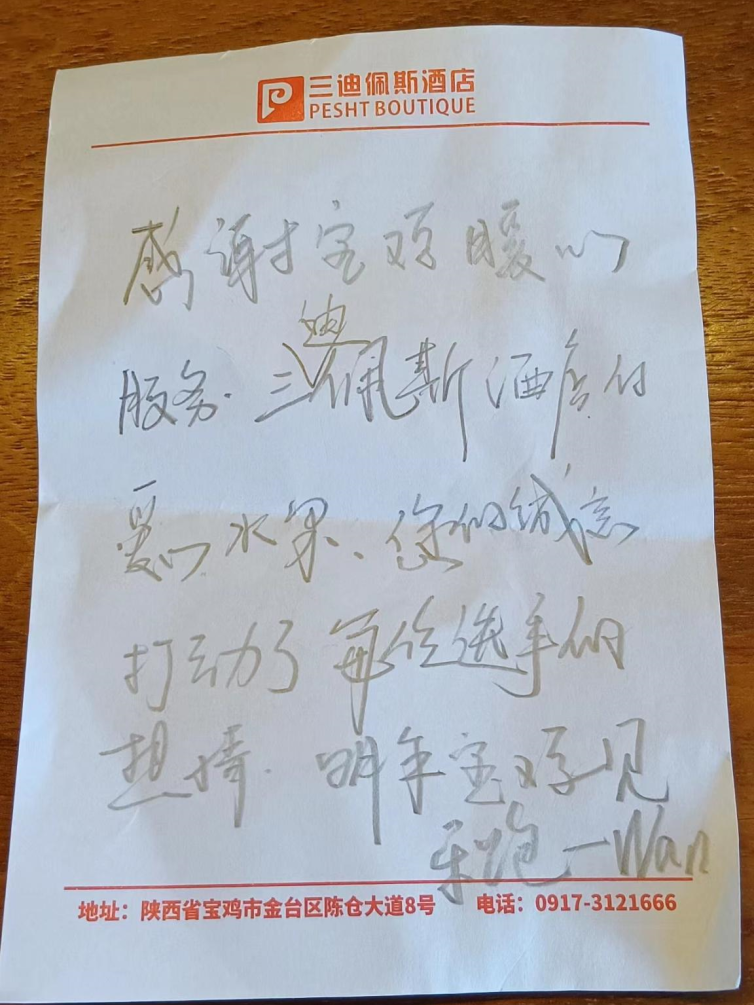 三迪佩斯酒店
PESHT BOUTIQUE
感谢宝鸡暖心
服务.三迪佩斯酒店的
爱心水果、您的诚意
打动了每位选手的
热情.明年宝鸡见
乐跑一Wan
地址：陕西省宝鸡市金台区陈仓大道8号 电话：0917-3121666